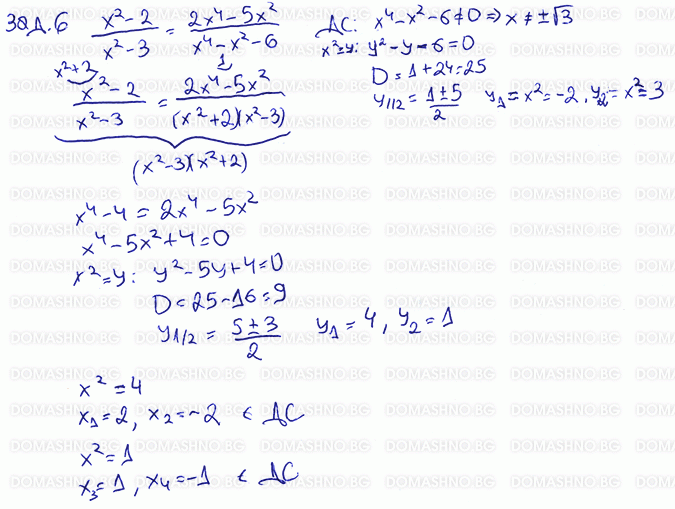 Зад.6 (x²-2)/(x²-3) = (2x⁴-5x²)/(x⁴-x²-6) ДС: x⁴-x²-6≠0 ⇒ x≠±√3
x²=y: y²-y-6=0
D=1+24=25
y1/2 = (1±5)/2 y₁=x²=-2, y₂=x²=3
x²+2 1
(x²-2)/(x²-3) = (2x⁴-5x²)/((x²+2)(x²-3))
(x²-3)(x²+2)
x⁴-4=2x⁴-5x²
x⁴-5x²+4=0
x²=y: y²-5y+4=0
D=25-16=9
y1/2 = (5±3)/2 y₁=4, y₂=1
x²=4
x₁=2, x₂=-2 ∈ ДС
x²=1
x₃=1, x₄=-1 ∈ ДС
DOMASHNO.BG